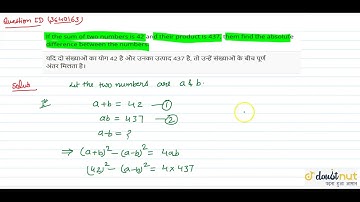 Question ID (3640163)
If the sum of two numbers is 42 and their product is 437, them find the absolute
difference between the numbers.
यदि दो संख्याओं का योग 42 है और उनका उत्पाद 437 है, तो उन्हें संख्याओं के बीच पूर्ण
अंतर मिलता है।
Let the two numbers are a & b.
a+b = 42 — ①
ab = 437 — ②
a-b = ?
⇒ (a+b)² - (a-b)² = 4ab
(42)² - (a-b)² = 4×437
doubtnut